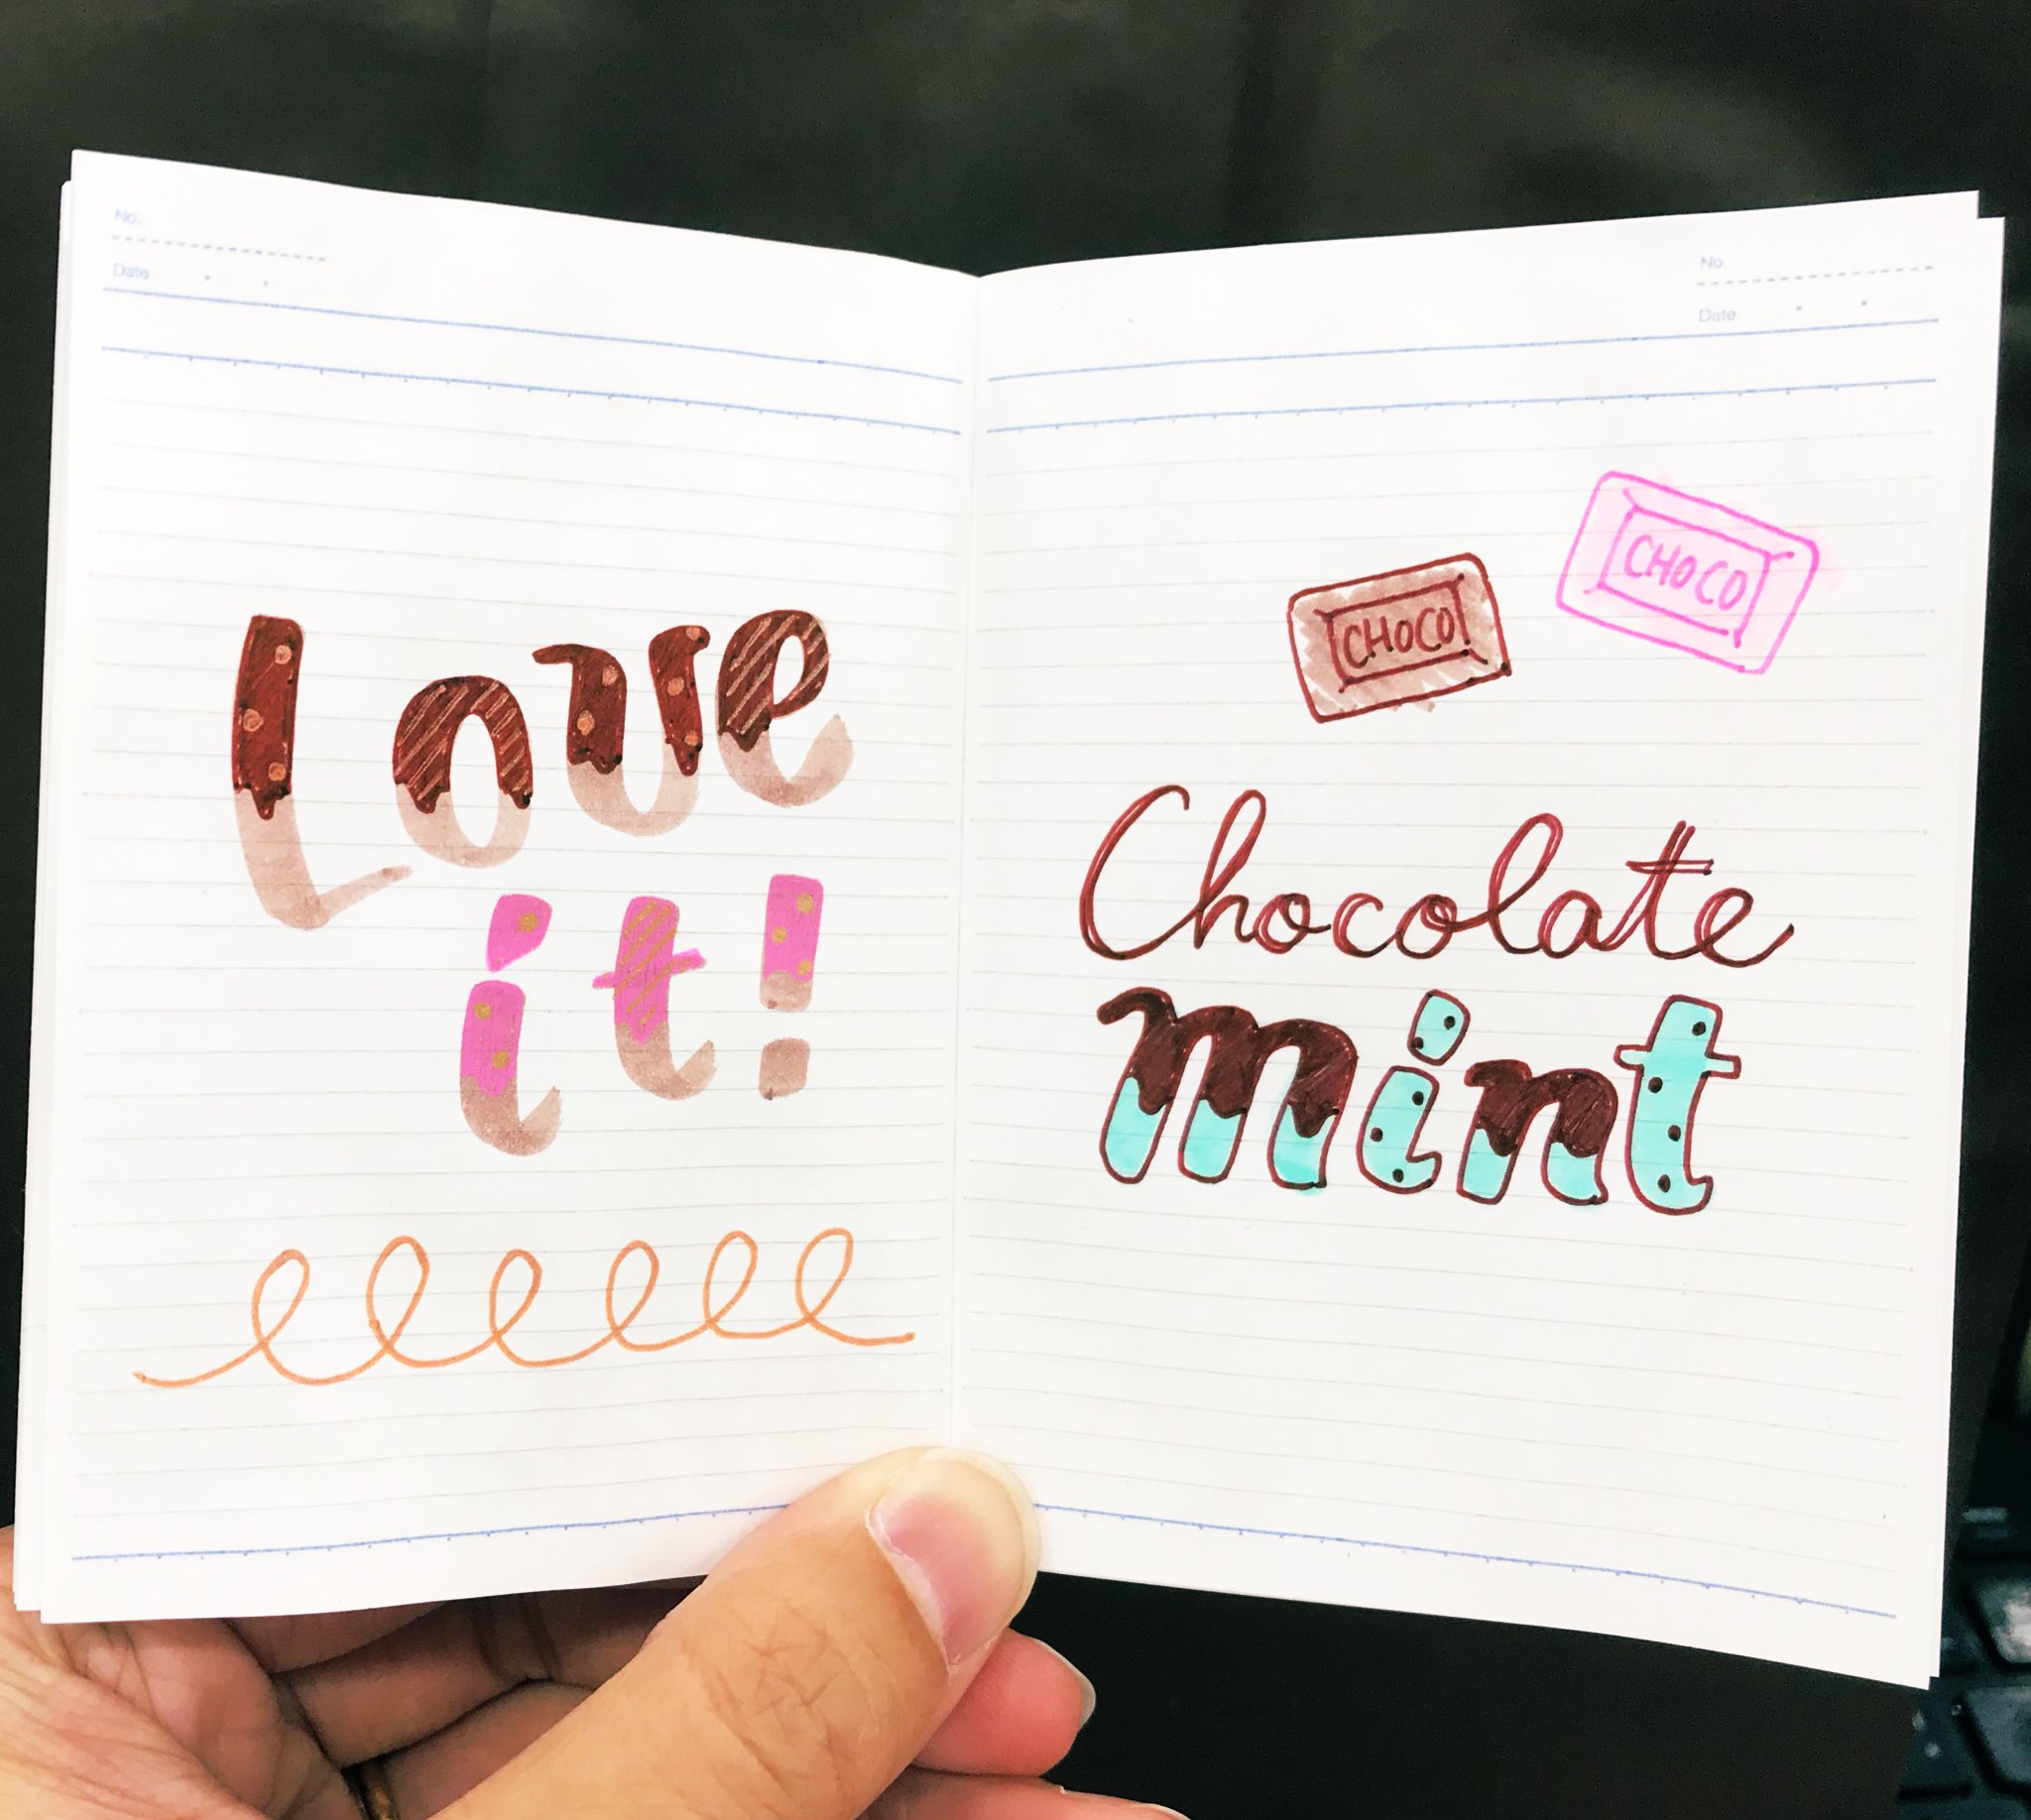 No.
Date
Love
it!
No.
Date
CHOCO
CHOCO
Chocolate
mint